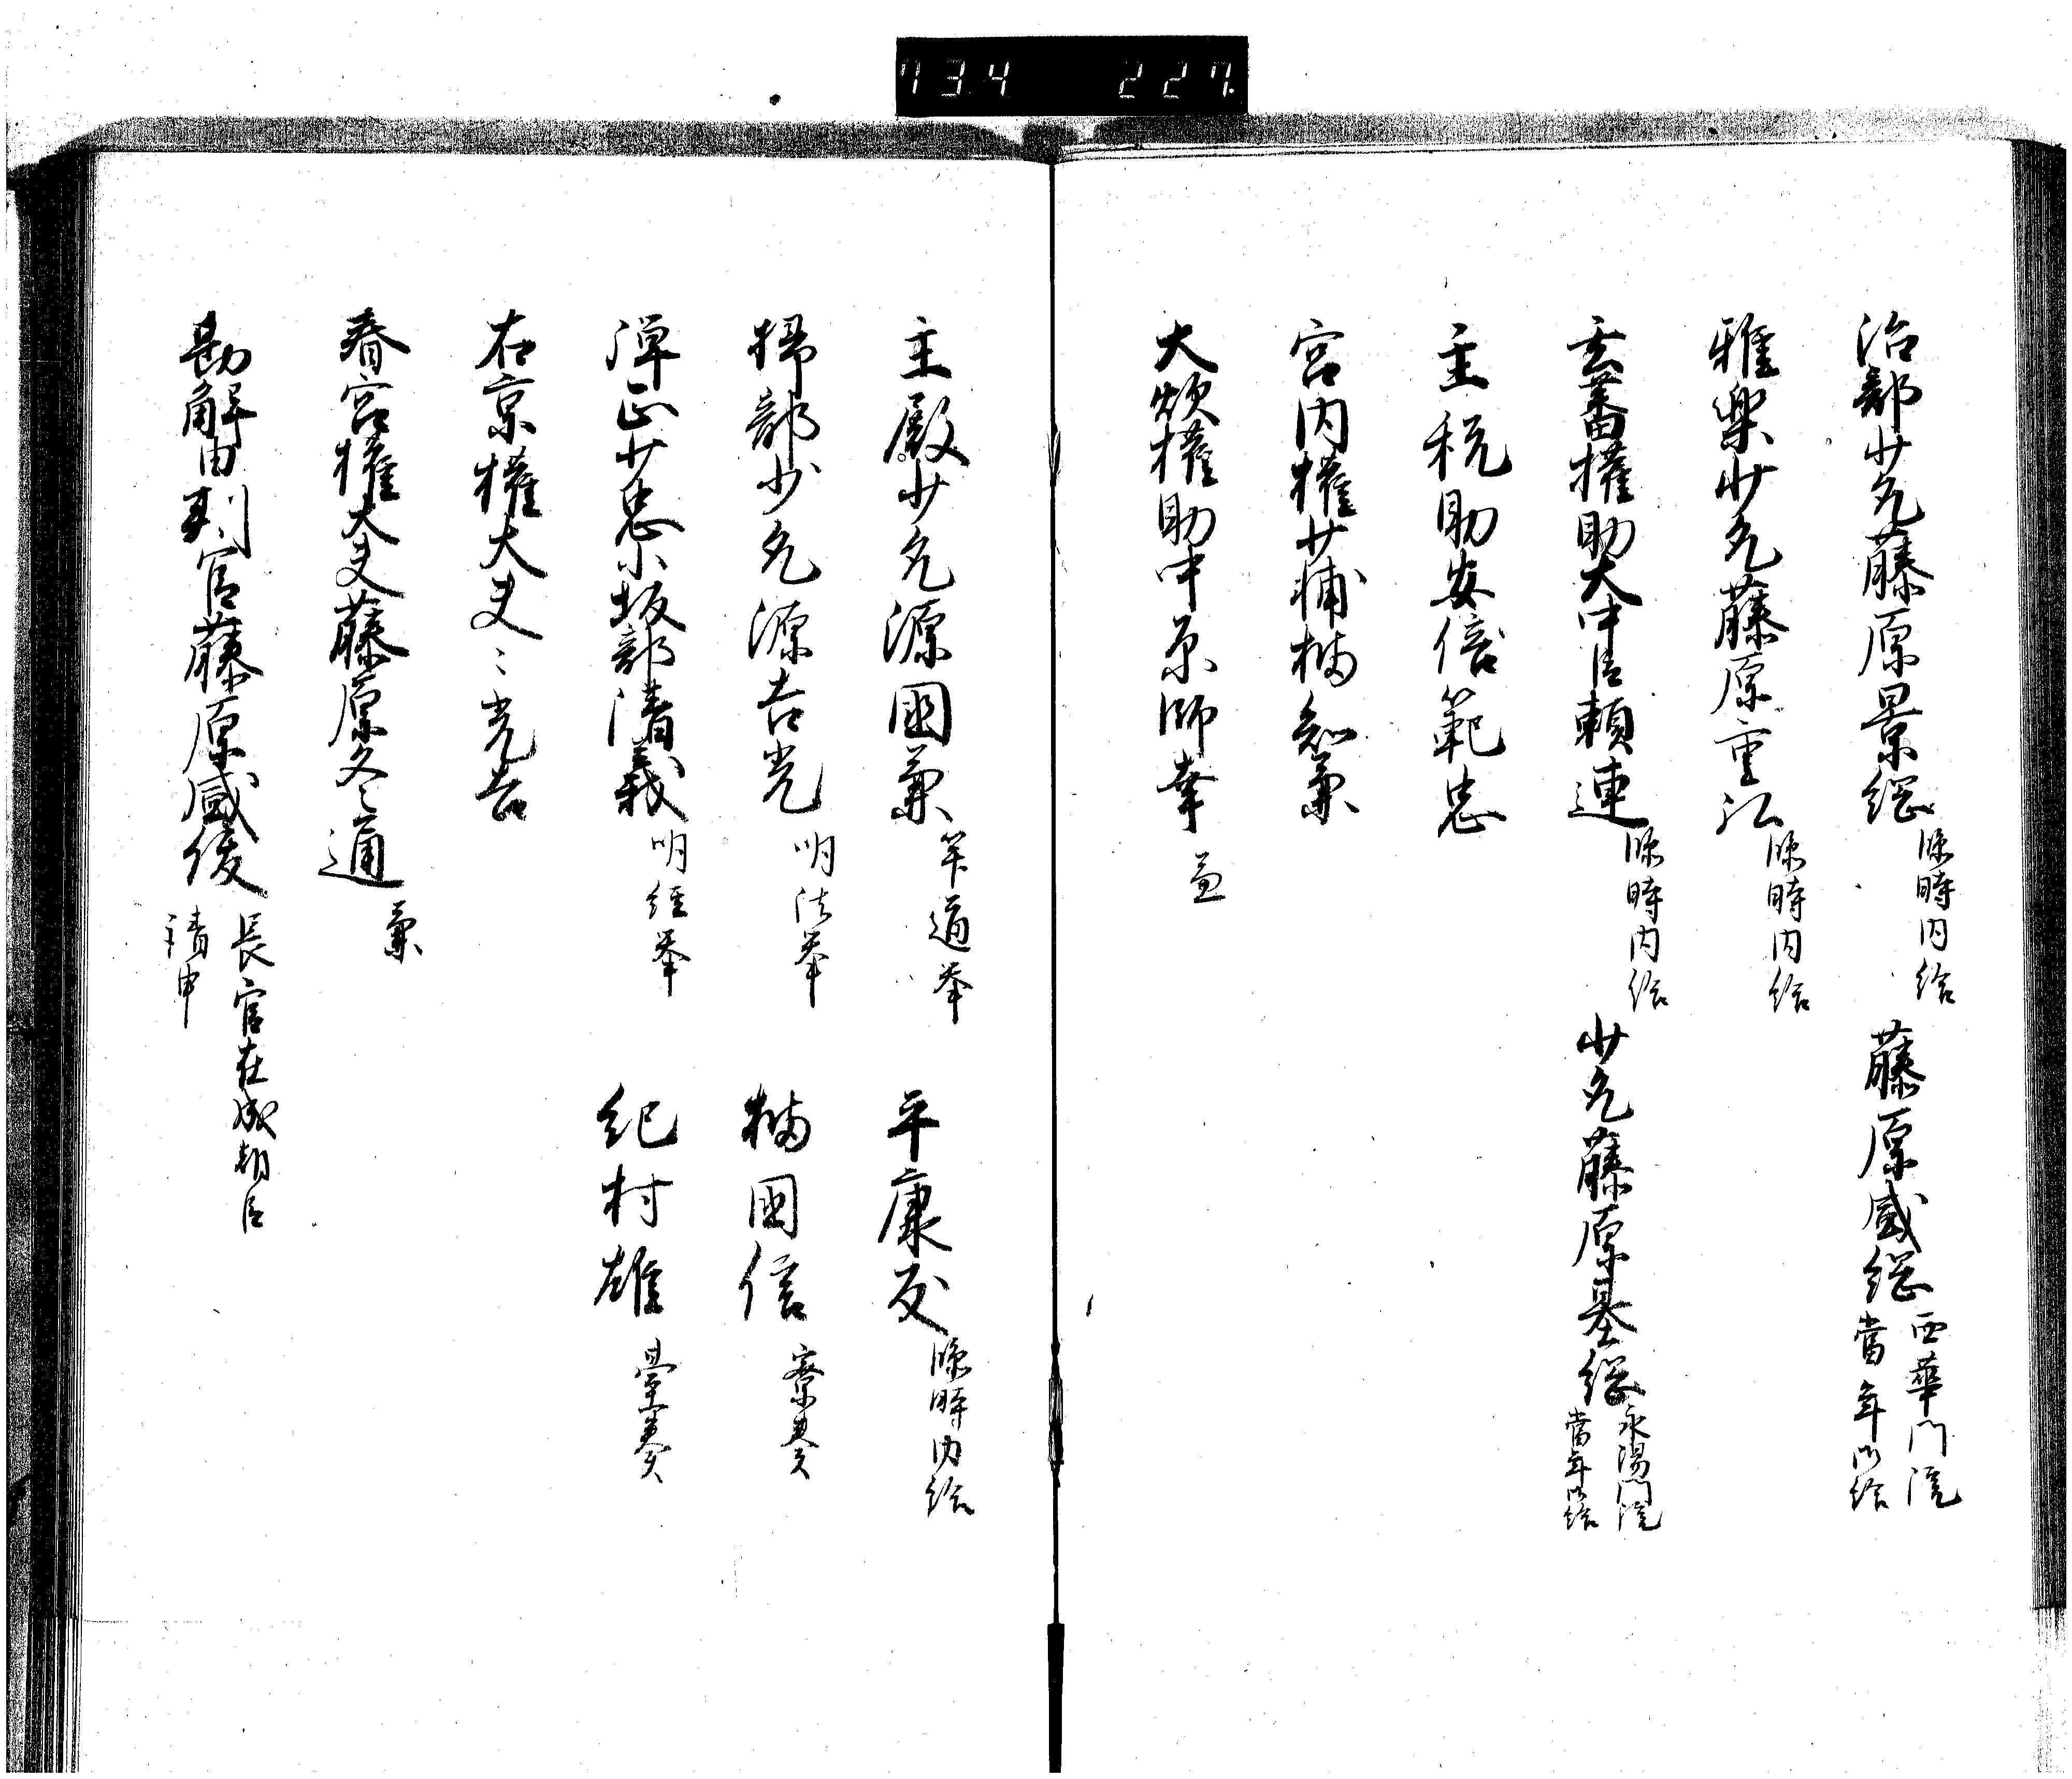 734 227
治部少允藤原景綱 臨時内給 藤原盛綱 西華門院當年御給
雅樂少允藤原重弘 臨時内給
玄蕃權助大中臣頼連 臨時内給 少允藤原基綱 永陽門院當年御給
主税助安倍範忠
宮内權少輔橘知兼
大炊權助中原師幸 兼
主殿少允源國兼 筭道挙 平康友 臨時内給
掃部少允源吉光 明法挙 橘國信 寮奏
弾正少忠小坂部清義 明経挙 紀村雄 臺奏
右京權大夫〻光吉
春宮權大夫藤原冬通 兼
勘解由判官藤原盛俊 長官在成朝臣請申